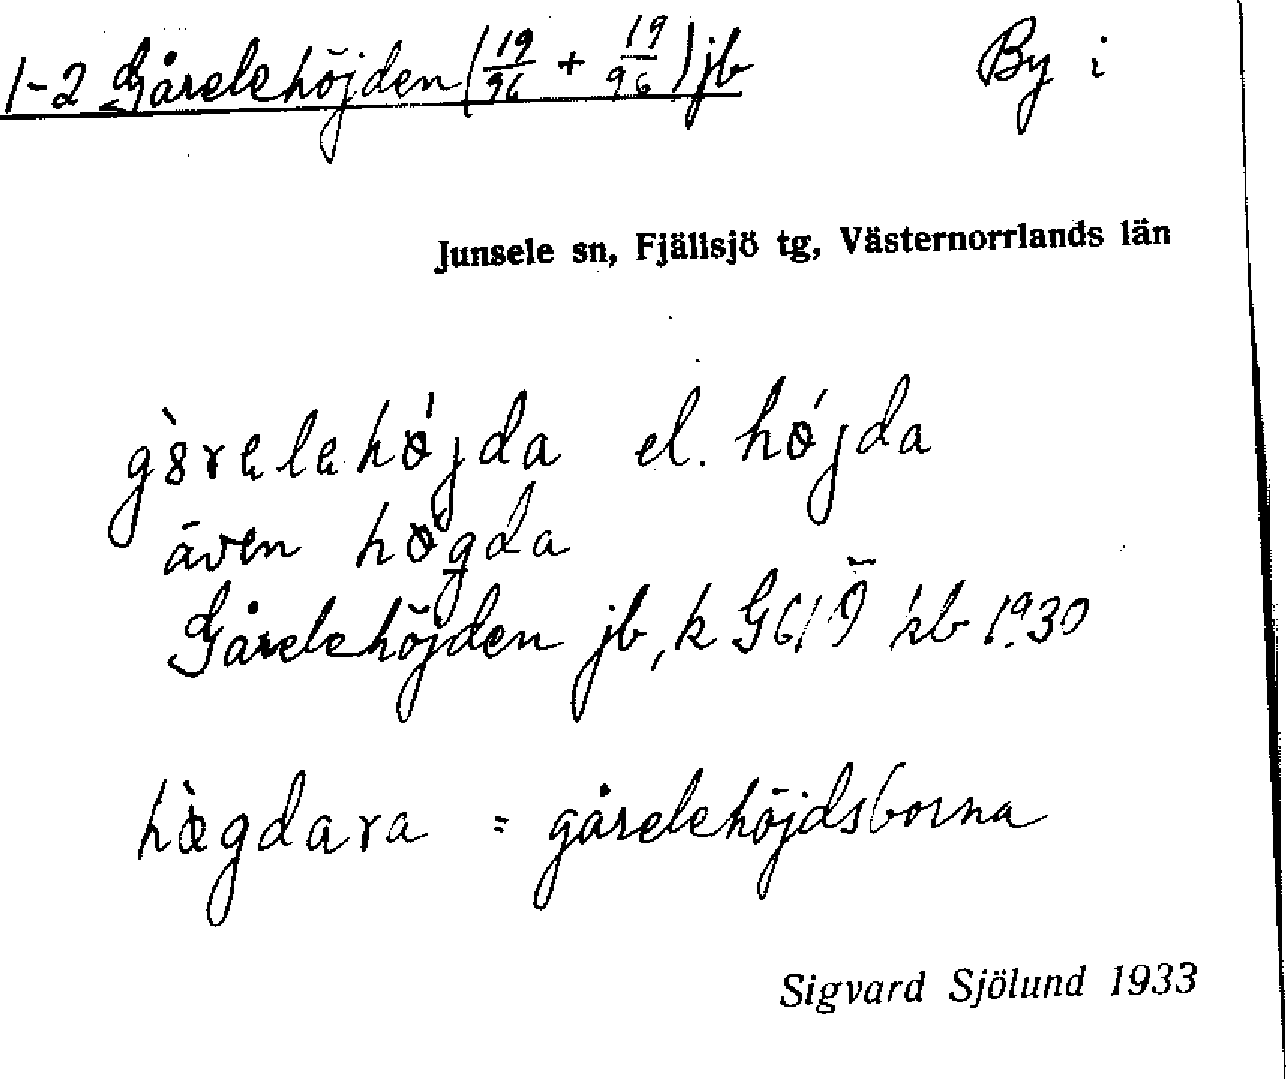 1-2 Gårelehöjden (19/96 + 19/96) jb By i
Junsele sn, Fjällsjö tg, Västernorrlands län
gàrelehǿjda el. hǿjda
även høgda
Gårelehöjden jb, k G61Ö kb 1930
hø̀gdara = gårelehöjdsborna
Sigvard Sjölund 1933